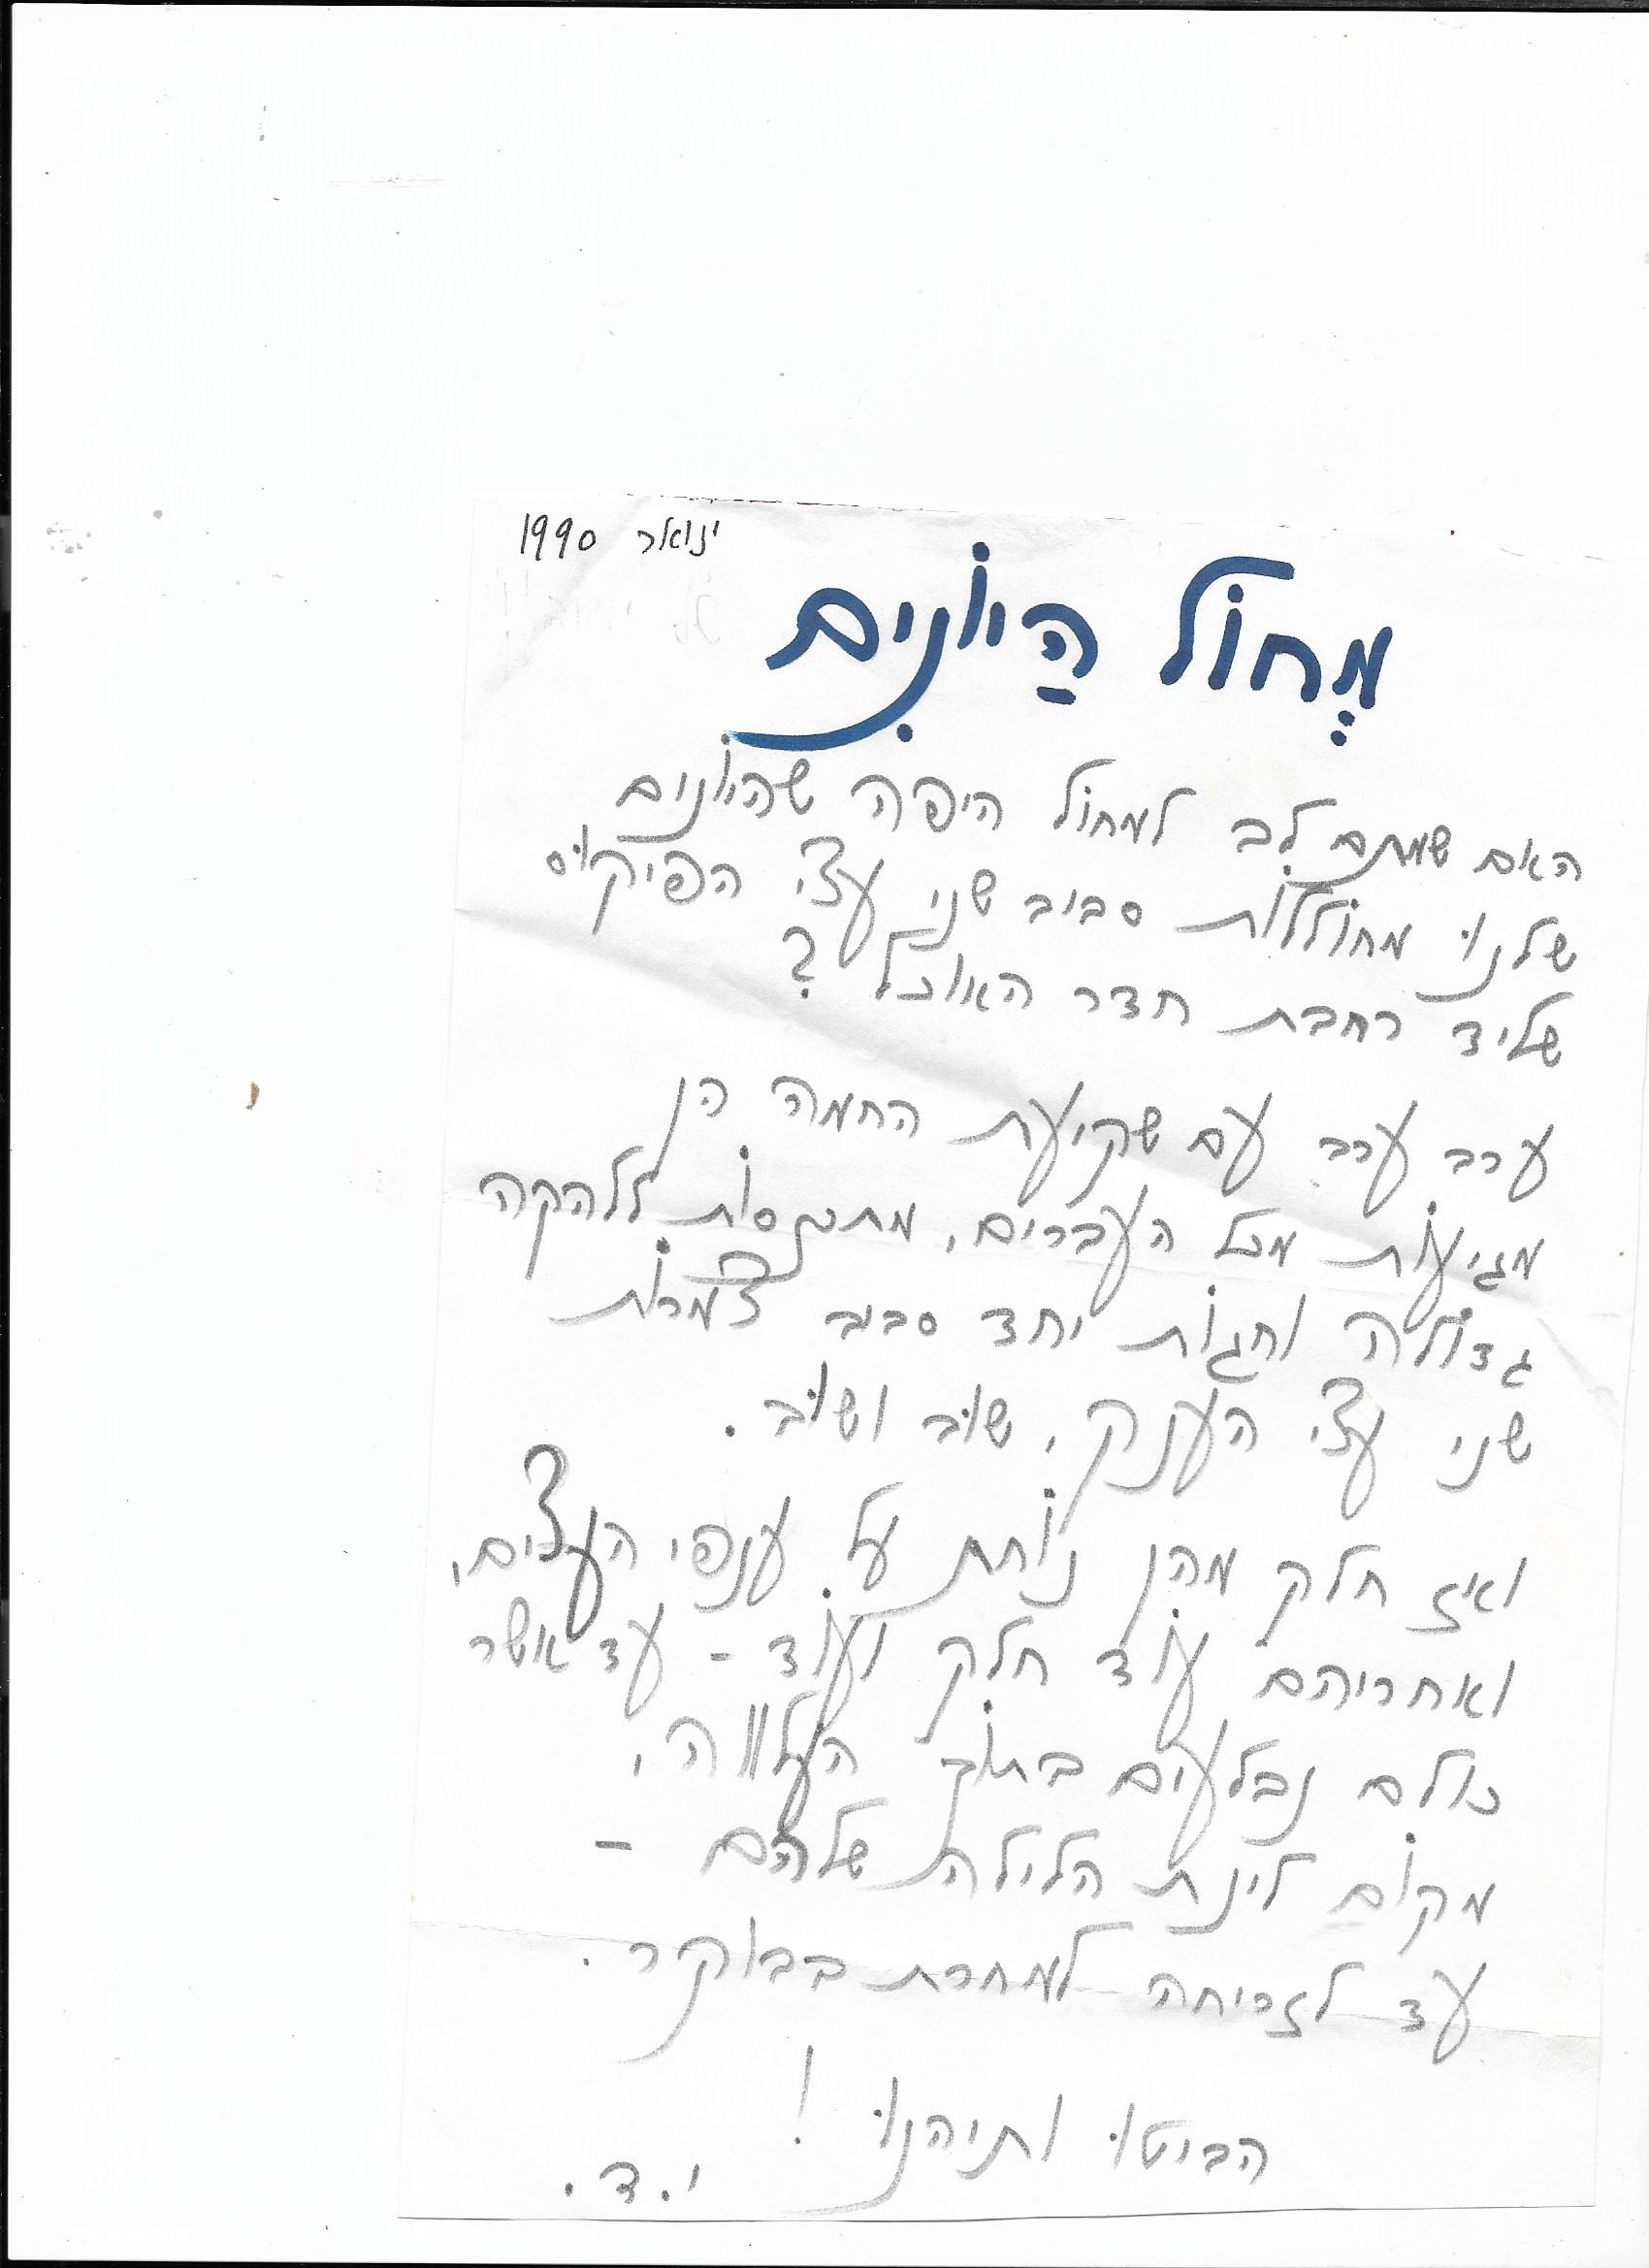 ינואר 1990
מְחוֹל הַיוֹנִים
האם שמתם לב למחול היפה שהיונים
שלנו מחוללות סביב שני עצי הפיקוס
שליד רחבת חדר האוכל ?
ערב ערב עם שקיעת החמה הן
מגיעות מכל העברים, מתכנסות ללהקה
גדולה וחגות יחד סביב צמרות
שני עצי הענק, שוב ושוב.
ואז חלק מהן נוחת על ענפי העצים,
ואחריהם עוד חלק ועוד - עד אשר
כולם נבלעים בתוך העלווה,
מקום לינת הלילה שלהם -
עד לזריחה למחרת בבוקר.
הביטו ותיהנו !
י.ד.